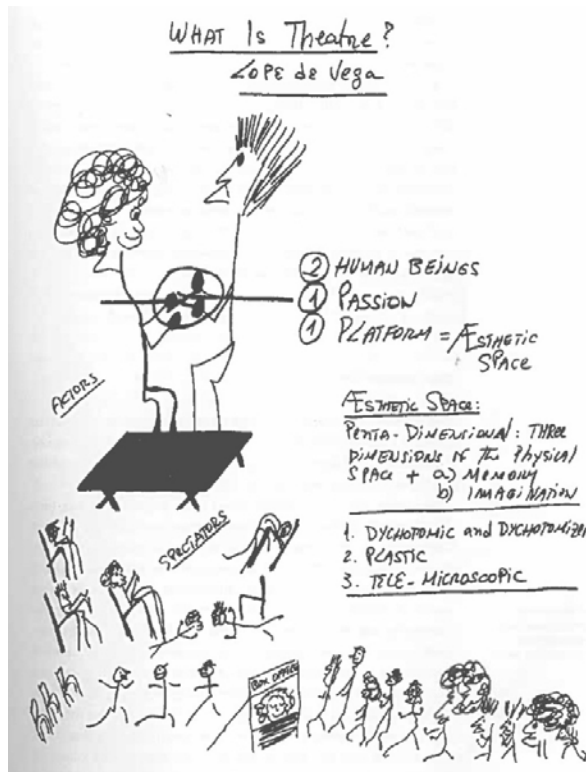 WHAT IS THEATRE?
LOPE de Vega
2 HUMAN BEINGS
1 PASSION
1 PLATFORM = ÆSTHETIC
SPACE
ACTORS
ÆSTHETIC SPACE:
PENTA-DIMENSIONAL: THREE
DIMENSIONS OF the PHYSICAL
SPACE + a) MEMORY
b) IMAGINATION
1. DYCHOTOMIC and DYCHOTOMIZER
2. PLASTIC
3. TELE-MICROSCOPIC
SPECTATORS
BOX OFFICE